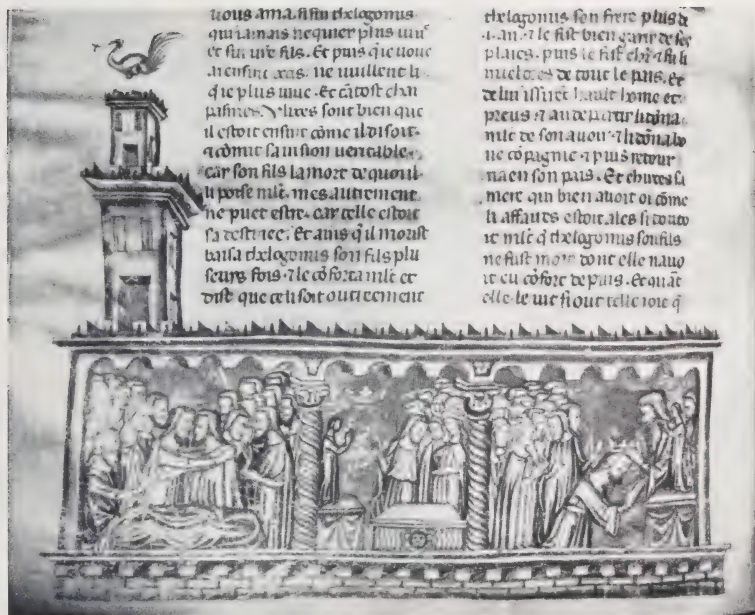 uous ama. si fin thelogonus
qui iamais ne quier plus uiu
et sui ure fils. Et puis que uoue
ne uuillent li
que plus uiue. Et tātost
Vlixes sont bien que
il estoit ensint cōme il disoit.
sa uision ueritable.
car son fils la mort de quoi il
li poise mlt. mes autrement
ne puet estre. car telle estoit
sa destinee. Et auis q̄ il morust
baisa thelogonus son fils plu
seurs fois. ⁊ le cōforta mlt et
dist que celi soit outreement
thelogonus son frere plus de
.i. an. ⁊ le fist bien garir de ses
plaies. puis le fist chr̄ ⁊ fu li
mieldres de tout le pais. et
de lui issirent hault home et
preus. ⁊ au departir li dōna
mlt de son auoir. ⁊ li dōna bo
ne cōpagnie. ⁊ puis retour
na en son pais. Et chirces sa
mere qui bien auoit oi cōme
li affaires estoit ales si douto
it mlt q̄ thelogonus son fils
ne fust mort dont elle nauo
it eu cōfort depuis. Et quāt
elle le uit si out telle ioie q̄